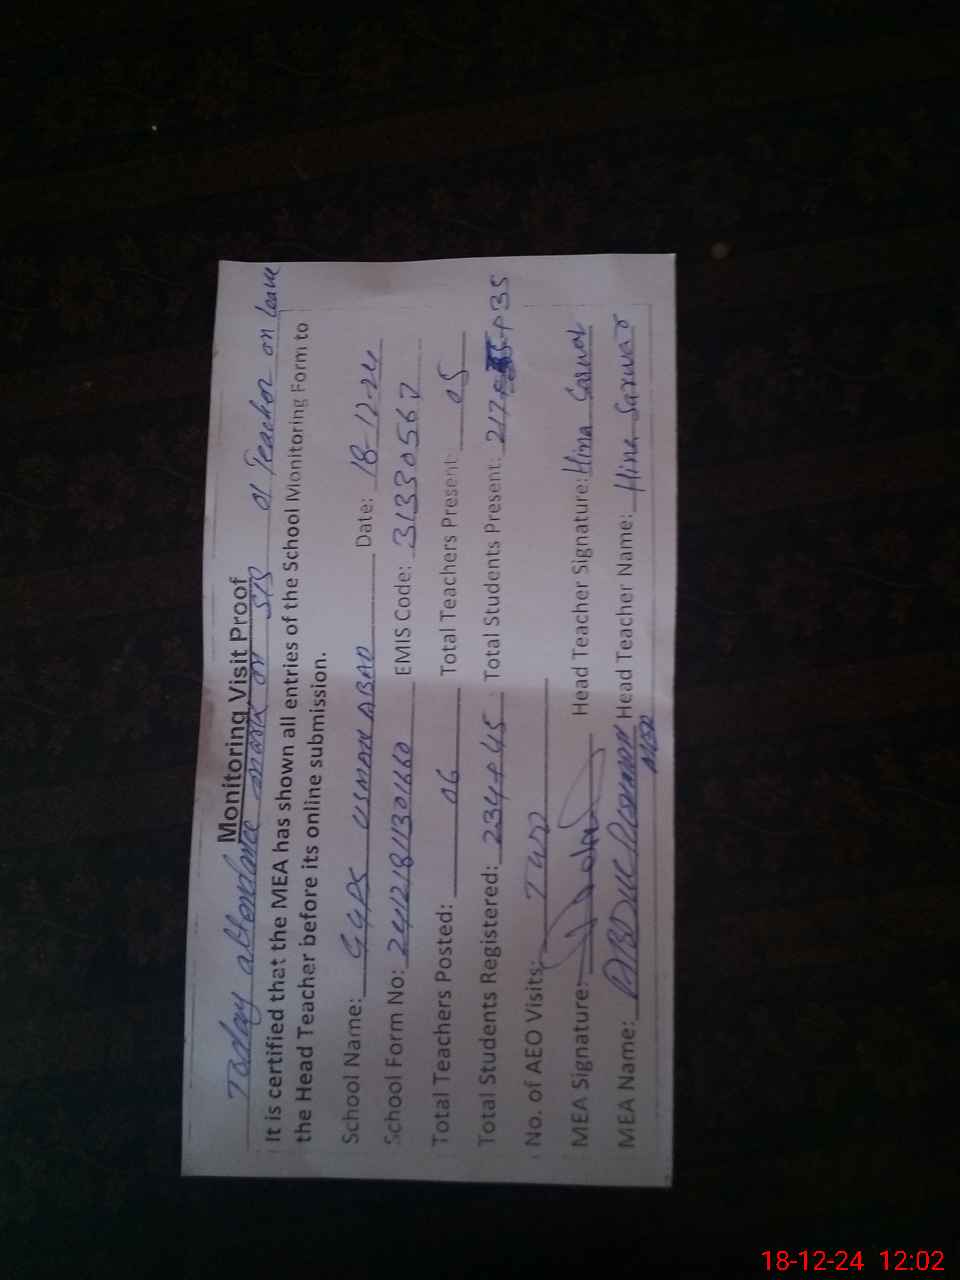 Monitoring Visit Proof
Today attendance mark on SIS 01 Teacher on leave
It is certified that the MEA has shown all entries of the School Monitoring Form to
the Head Teacher before its online submission.
School Name: GGPS USMAN ABAD Date: 18-12-24
School Form No: 2412181301660 EMIS Code: 31330567
Total Teachers Posted: 06 Total Teachers Present: 05
Total Students Registered: 234+45 Total Students Present: 217+35
No. of AEO Visits: TWO
MEA Signature: Head Teacher Signature: Hina Sarwar
MEA Name: ABDUL Head Teacher Name: Hina Sarwar
18-12-24 12:02